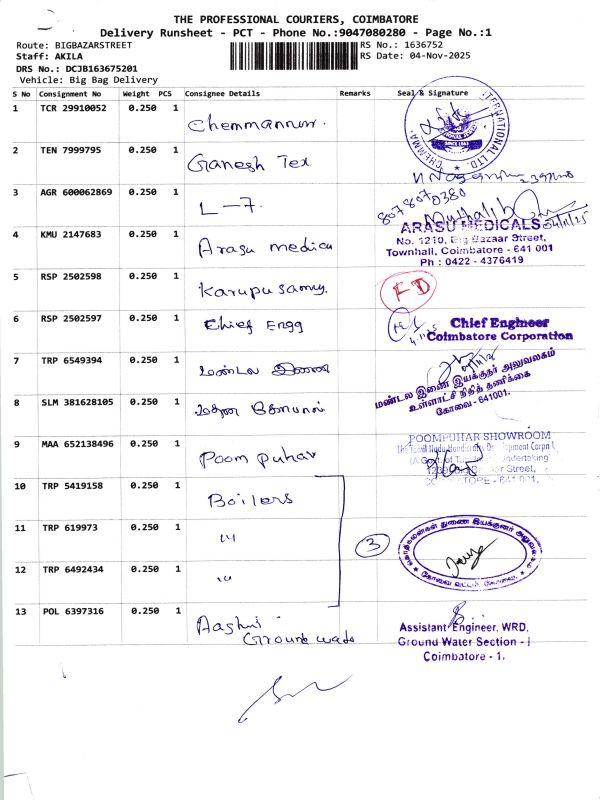 THE PROFESSIONAL COURIERS, COIMBATORE
Delivery Runsheet - PCT - Phone No.:9047080280 - Page No.:1
Route: BIGBAZARSTREET
RS No.: 1636752
Staff: AKILA
RS Date: 04-Nov-2025
DRS No.: DCJB163675201
Vehicle: Big Bag Delivery
S No Consignment No Weight PCS Consignee Details Remarks Seal & Signature
1 TCR 29910052 0.250 1 Chemmannur.
INTERNATIONAL LTD.
2 TEN 7999795 0.250 1 Ganesh Tex
3 AGR 600062869 0.250 1 L-7.
8078070380
4 KMU 2147683 0.250 1 Arasu medica
ARASU MEDICALS
No. 1210, Big Bazaar Street,
Townhall, Coimbatore - 641 001
Ph : 0422 - 4376419
5 RSP 2502598 0.250 1 Karupusamy.
FD
6 RSP 2502597 0.250 1 Chief Engg
Chief Engineer
Coimbatore Corporation
7 TRP 6549394 0.250 1 மண்டல இணை
மண்டல இணை இயக்குனர் அலுவலகம்
உள்ளாட்சி நிதித் தணிக்கை
கோவை - 641001.
8 SLM 381628105 0.250 1
9 MAA 652138496 0.250 1 Poom puhar
POOMPUHAR SHOWROOM
Street,
10 TRP 5419158 0.250 1 Boilers
11 TRP 619973 0.250 1 "
3
12 TRP 6492434 0.250 1 "
13 POL 6397316 0.250 1 Ground
Assistant Engineer, WRD,
Ground Water Section - I
Coimbatore - 1.